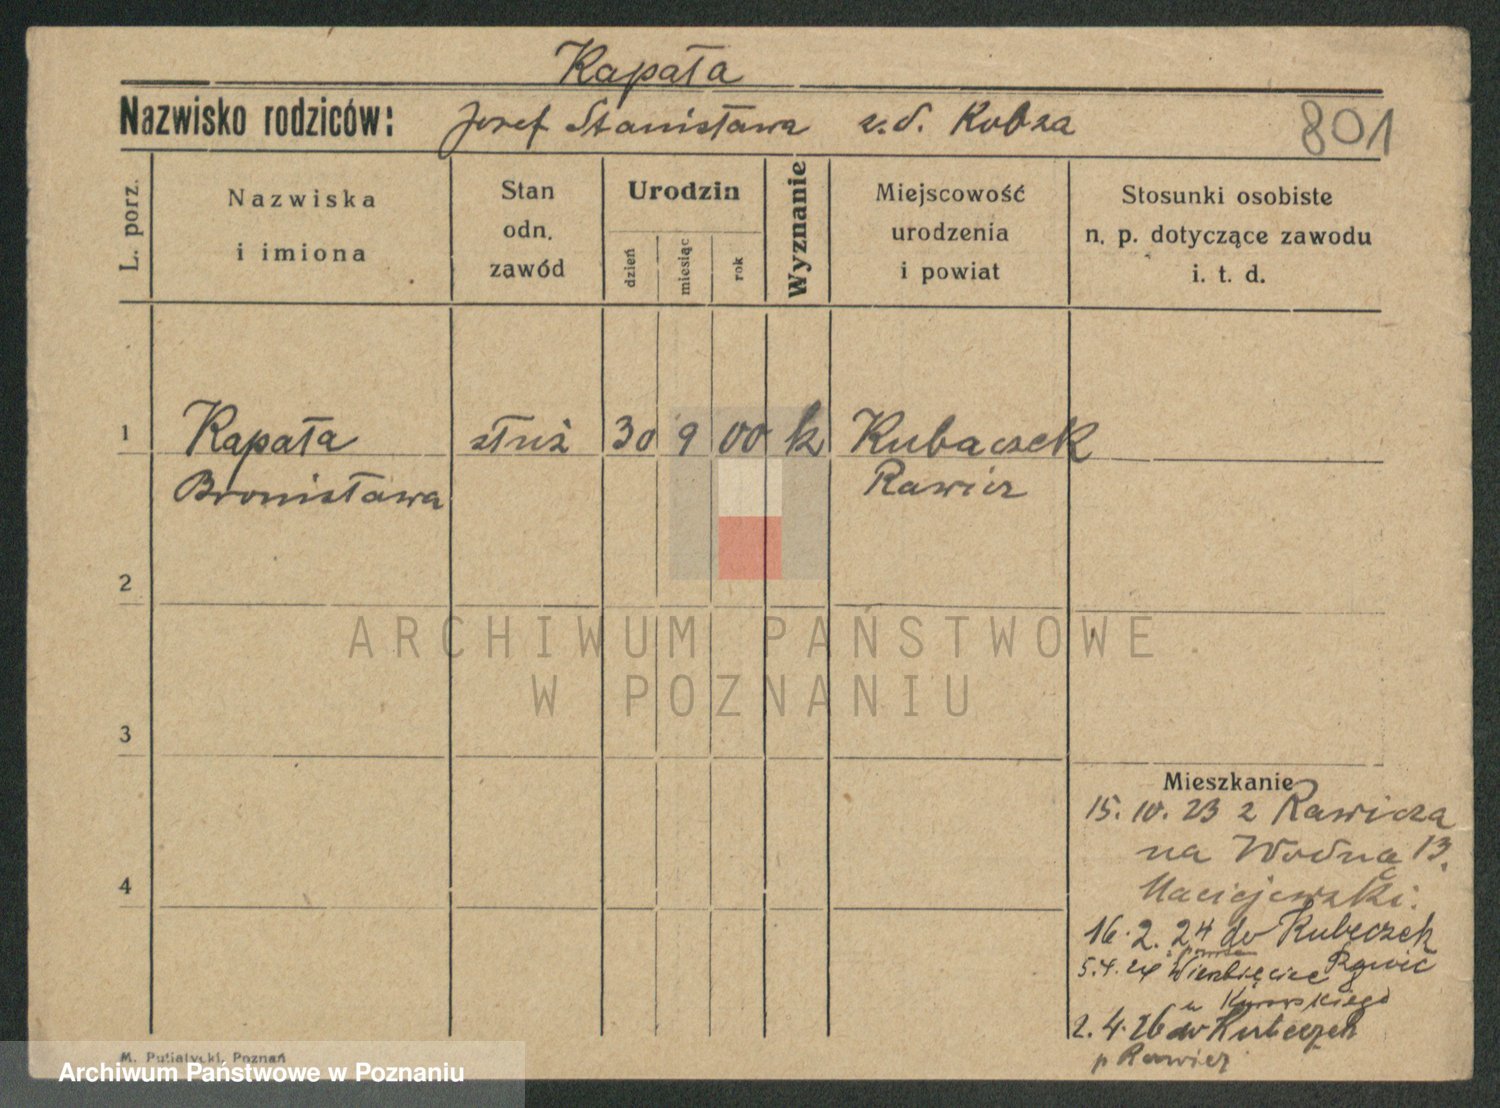 Kapała
Nazwisko rodziców: Józef Stanisława z.d. Kobza
801
L. porz.
Nazwiska
i imiona
Stan
odn.
zawód
Urodzin
dzień
miesiąc
rok
Wyznanie
Miejscowość
urodzenia
i powiat
Stosunki osobiste
n. p. dotyczące zawodu
i. t. d.
1 Kapała służ 30 9 00 k Kubaczek
Bronisława Rawicz
2
ARCHIWUM PAŃSTWOWE
W POZNANIU
3
4
Mieszkanie
15. 10. 23 z Rawicza
na Wodną 13.
Maciejewski.
16. 2. 24 do Kubeczek
Rawic
5.4.24 Wierzbięcice
u Kurowskiego
2. 4. 26 do Kubeczek
p Rawicz
M. Putiatycki, Poznań
Archiwum Państwowe w Poznaniu